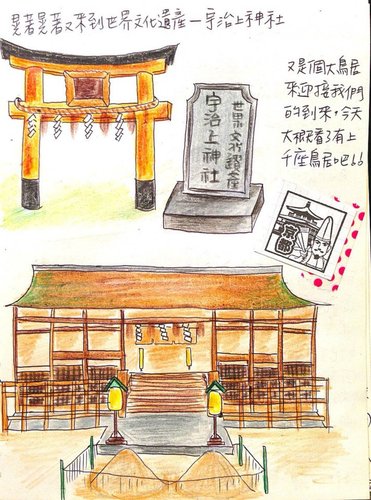 晃著晃著又來到世界文化遺產－宇治上神社
又是個大鳥居
來迎接我們
的到來，今天
大概看了有上
千座鳥居吧！！
世界文化遺產
宇治上神社
京都